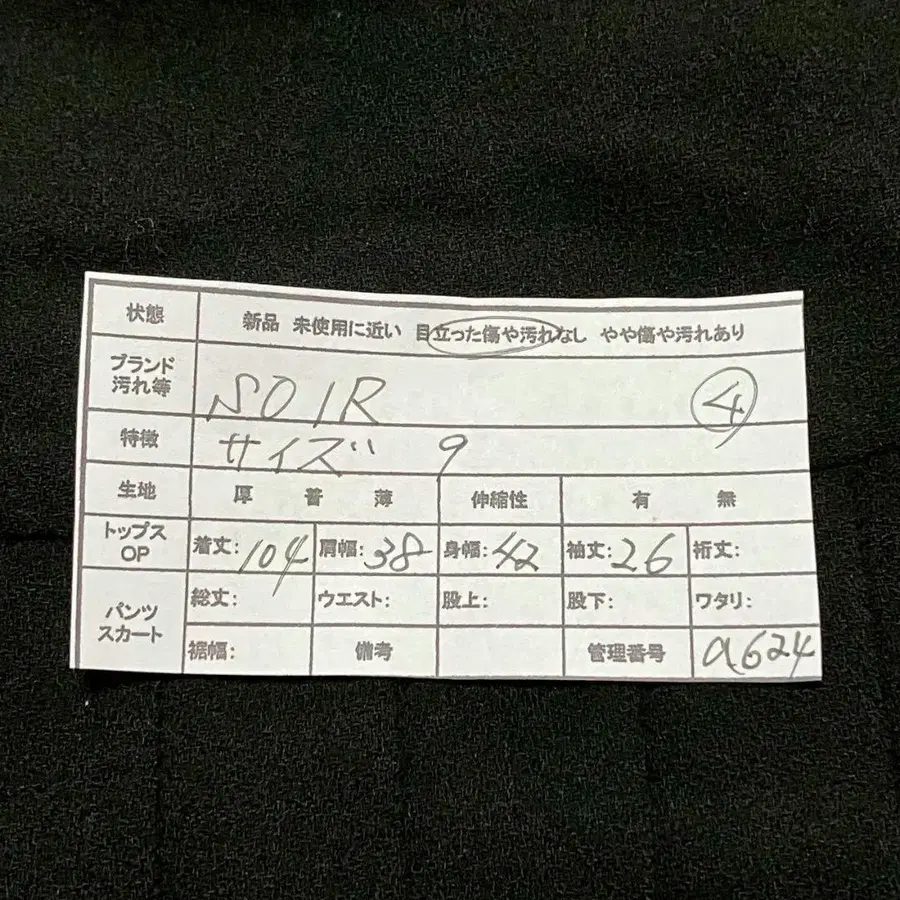 状態 新品 未使用に近い 目立った傷や汚れなし やや傷や汚れあり
ブランド
汚れ等 SOIR ④
特徴 サイズ 9
生地 厚 普 薄 伸縮性 有 無
トップス
OP 着丈:104 肩幅:38 身幅:42 袖丈:26 裄丈:
パンツ
スカート 総丈: ウエスト: 股上: 股下: ワタリ:
裾幅: 備考 管理番号 a624